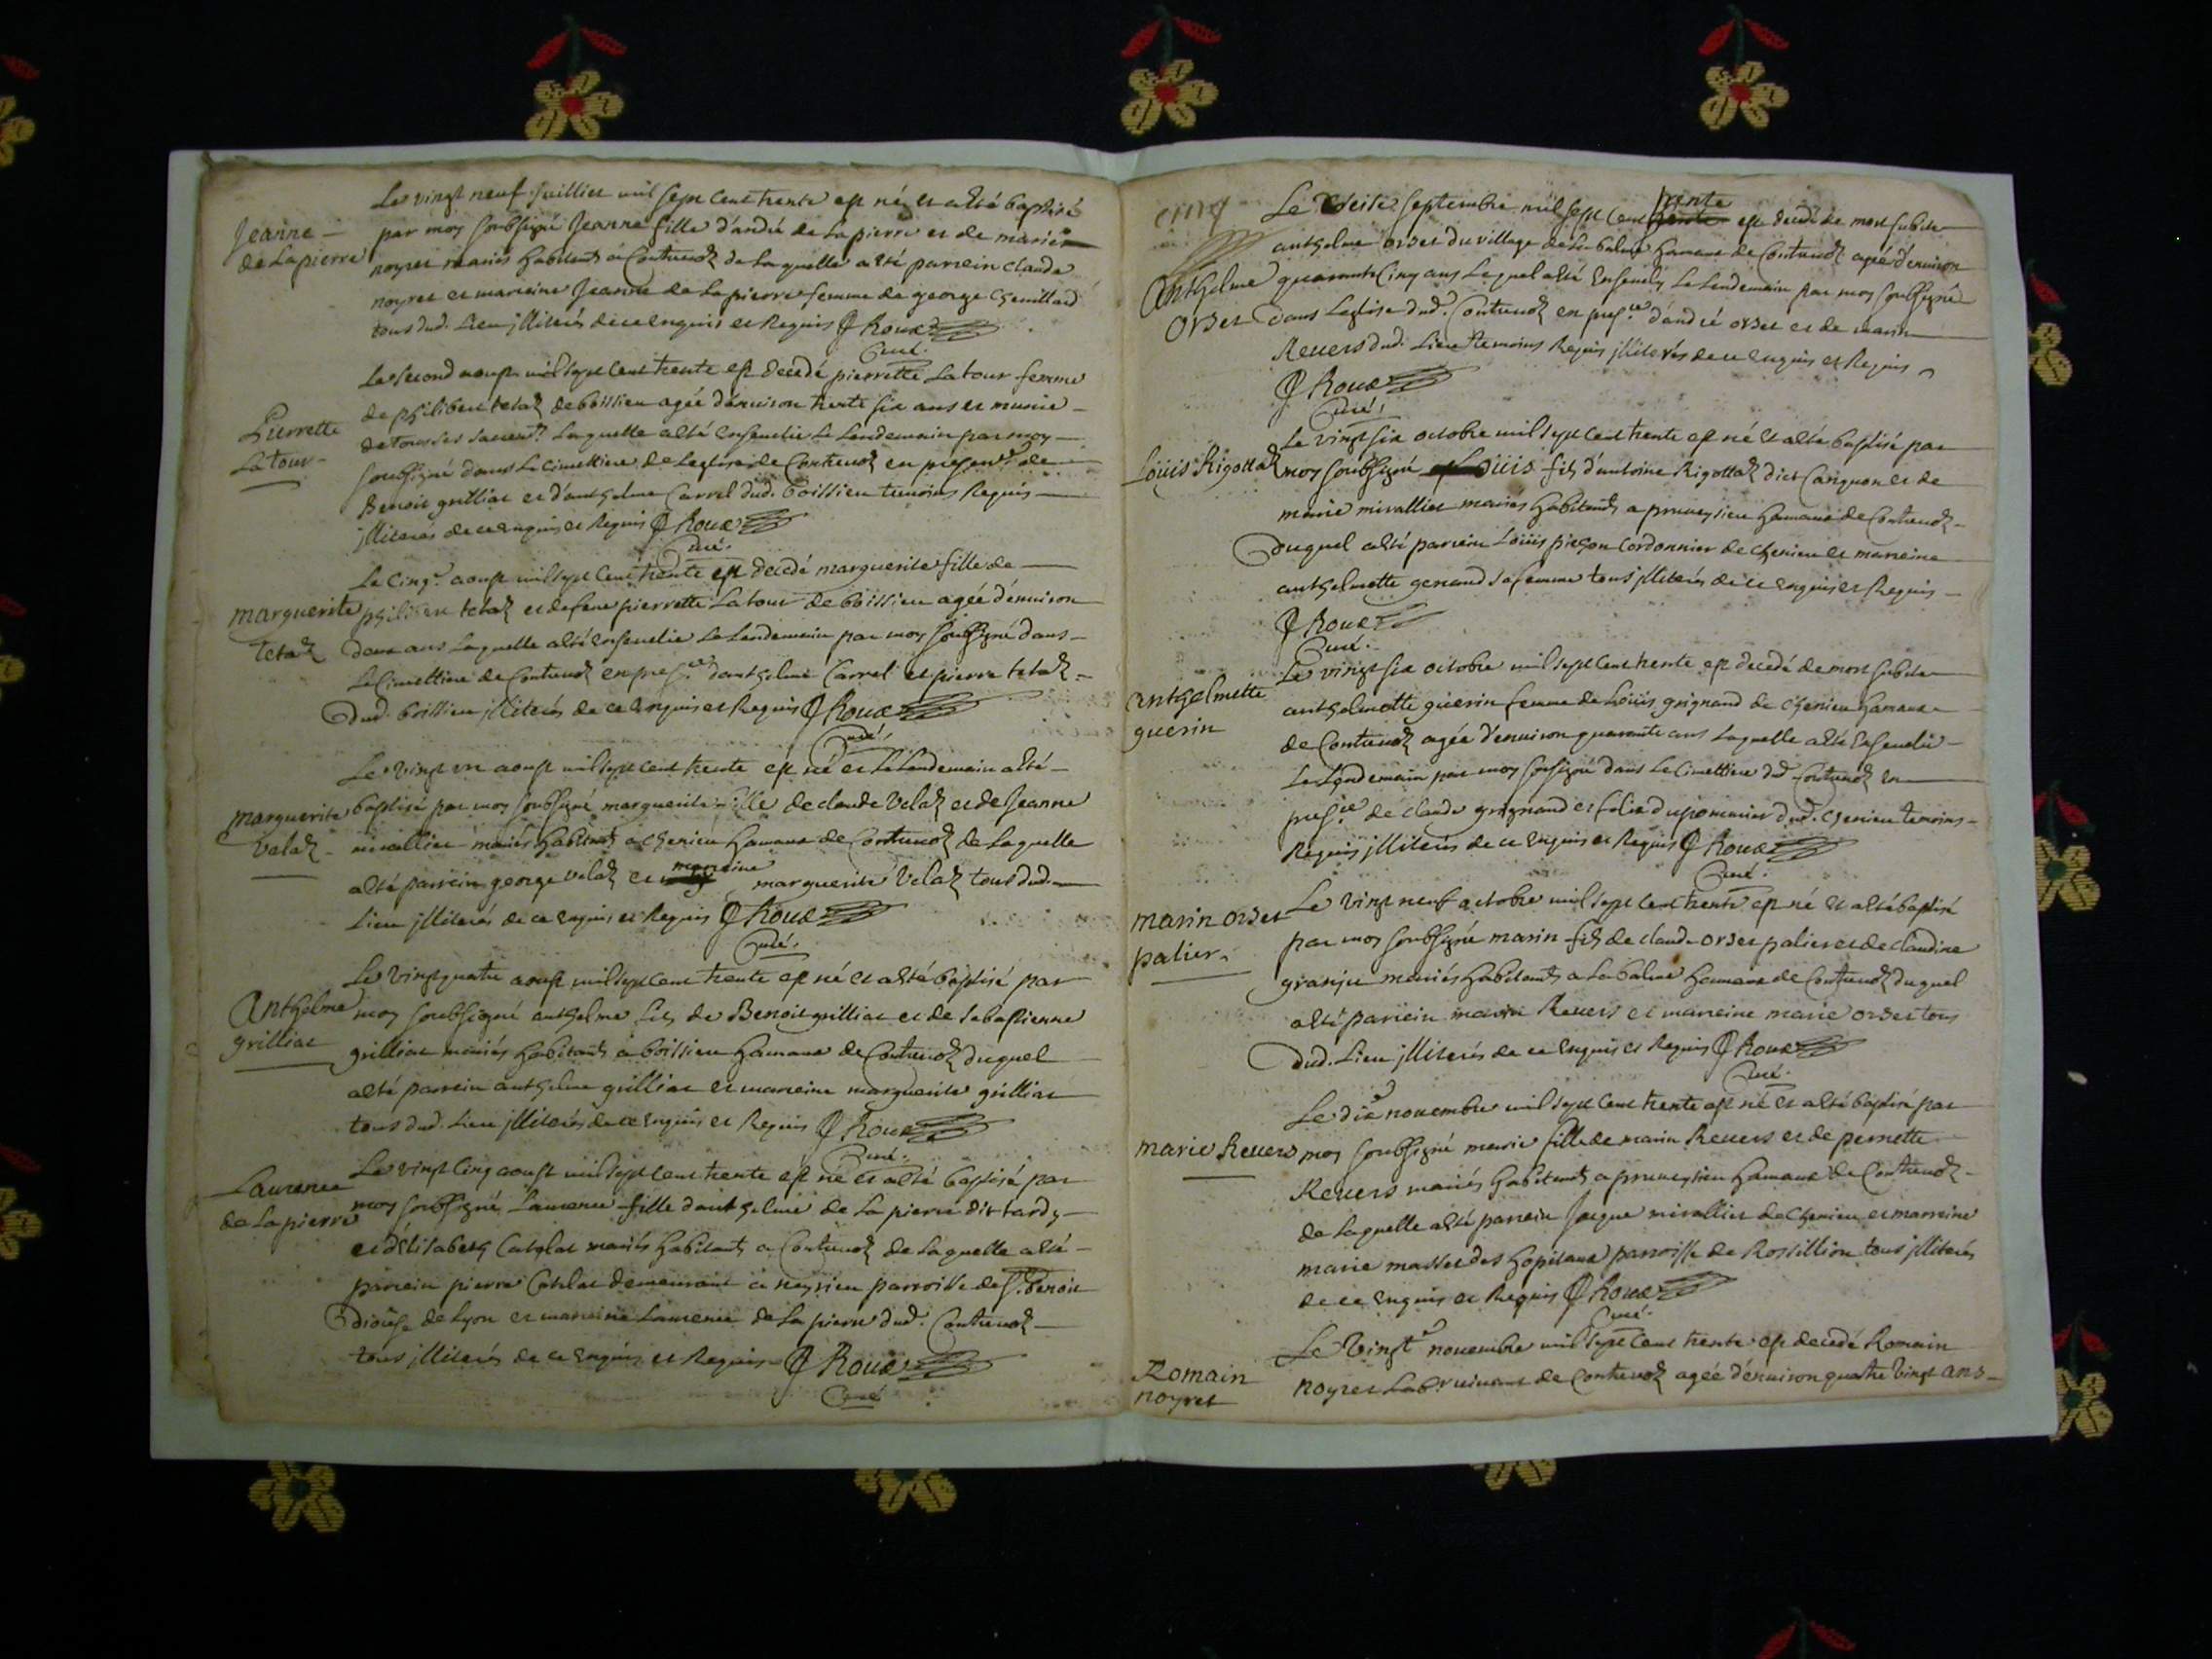 Le vingt neuf juillier mil sept cent trente est né et a esté baptisé
Jeanne de Lapierre
par moy soubsigné Jeanne fille d'andré de Lapierre et de marie
noyret mariés habitants a Contrevoz de laquelle a esté parrein claude
noyret et marreine Jeanne de Lapierre femme de george
tous dud. Lieu jlliterés de ce enquis et Requis Roux
Curé.
Le second aoust mil sept cent trente est decedé pierrette Latour femme
Pierrette Latour
de philibert tetaz de boissieu agée d'environ trente six ans et munie
de tous ses sacrem.ts Laquelle a esté ensevelie Le Lendemain par moy
soubsigné dans Le cimettiere de Leglise de Contrevoz en presen.ce de
Benoit grilliat et d'anthelme Carrel dud. boissieu temoins Requis
jlliterés de ce enquis et Requis Roux
Curé.
Le cinq.e aoust mil sept cent trente est decedé marguerite fille de
marguerite tetaz
philibert tetaz et de feue pierrette Latour de boissieu agée d'environ
deux ans Laquelle a esté ensevelie Le Lendemain par moy soubsigné dans
Le Cimettiere de Contrevoz en pres.ce d'anthelme Carrel et pierre tetaz
dud. boissieu jlliterés de ce enquis et Requis Roux
Curé.
Le vingt un aoust mil sept cent trente est né et Le Lendemain a esté
marguerite velaz
baptisé par moy soubsigné marguerite fille de claude velaz et de Jeanne
mirallier mariés habitants a chenieu hameau de Contrevoz de Laquelle
a esté parrein george velaz et marreine marguerite velaz tous dud.
Lieu jlliterés de ce enquis et Requis Roux
Curé.
Le vingt quatre aoust mil sept cent trente est né et a esté baptisé par
Anthelme grilliat
moy soubsigné anthelme fils de Benoit grilliat et de sebastienne
grilliat mariés habitants a boissieu hameau de Contrevoz duquel
a esté parrein anthelme grilliat et marreine marguerite grilliat
tous dud. Lieu jlliterés de ce enquis et Requis Roux
Curé.
Le vingt cinq aoust mil sept cent trente est né et a esté baptisé par
Laurence de Lapierre
moy soubsigné Laurence fille d'anthelme de Lapierre dit tardy
et d'Elisabeth mariés habitants a Contrevoz de Laquelle a esté
parrein pierre demeurant a parroisse de St. Benoit
diocese de Lyon et marreine Laurence de Lapierre dud. Contrevoz
tous jlliterés de ce enquis et Requis Roux
Curé
cinq
Le septembre mil sept cent trente est decedé de mort subite
Anthelme Orset
anthelme orset du village de La balme hameau de Contrevoz agé d'environ
quarante Cinq ans Lequel a esté Ensevely Le Lendemain par moy soubsigné
dans Leglise dud. Contrevoz en pres.ce d'andré orset et de marin
Revers dud. Lieu temoins Requis jlliterés de ce enquis et Requis
Roux
Curé.
Le vingt six octobre mil sept cent trente est né et a esté baptisé par
Loüis Rigottaz
moy soubsigné Loüis fils d'antoine Rigottaz dict Carignon et de
marie mirallier mariés habitants a pruneysieu hameau de Contrevoz
duquel a esté parrein Loüis pichon cordonnier de chenieu et marreine
anthelmette genand sa femme tous jlliterés de ce enquis et Requis
Roux
Curé.
Le vingt six octobre mil sept cent trente est decedé de mort subite
anthelmette guerin
anthelmette guerin femme de Loüis grignand de chenieu hameau
de Contrevoz agée d'environ quarante ans Laquelle a esté Ensevelie
Le Lendemain par moy sousigné dans Le Cimettiere dud Contrevoz en
pres.ce de claude grignand et felix dupommier dud. chenieu temoins
Requis jlliterés de ce enquis et Requis Roux
Curé.
Le vingt neuf octobre mil sept cent trente est né et a esté baptisé
marin orset palier
par moy soubsigné marin fils de claude orset palier et de claudine
granju mariés habitants a La balme hameau de Contrevoz duquel
a esté parrein marin Revers et marreine marie orset tous
dud. Lieu jlliterés de ce enquis et Requis Roux
Curé.
Le dix.e novembre mil sept cent trente est né et a esté baptisé par
marie Revers
moy soubsigné marie fille de marin Revers et de pernette
Revers mariés habitants a pruneysieu hameau de Contrevoz
de Laquelle a esté parrein Jacque mirallier de chenieu et marreine
marie masset des hopitaux parroisse de Rossillion tous jlliterés
de ce enquis et Requis Roux
Curé.
Le vingt.e novembre mil sept cent trente est decedé Romain
Romain noyret
noyret Lab.r vivant de Contrevoz agée d'environ quatre vingt ans